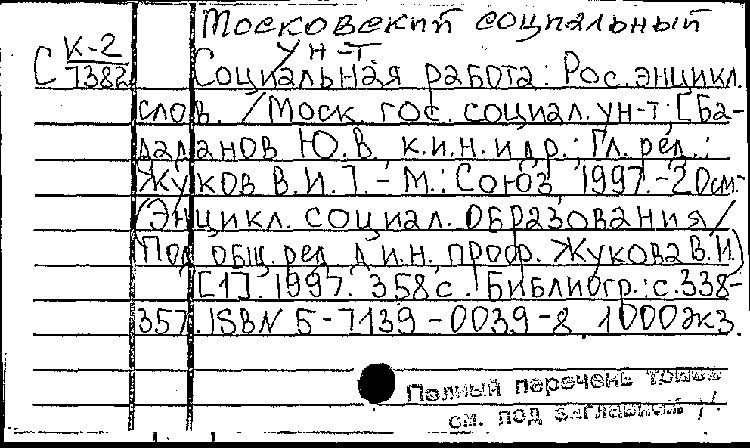 Московский социальный
ун-т.
С К-2
7382
Социальная работа: Рос. энцикл.
слов. / Моск. гос. социал. ун-т; [Ба-
даданов Ю.В. к.и.н. и др.; Гл. ред.:
Жуков В.И.]. - М.: Союз, 1997. - 20см. -
(Энцикл. социал. образования /
Под общ. ред. д.и.н. проф. Жукова В.И.)
[1]. 1997. 358с. Библиогр.: с.338-
357. ISBN 5-7139-0039-8. 1000экз.
Полный перечень томов
см. под заглавием /.